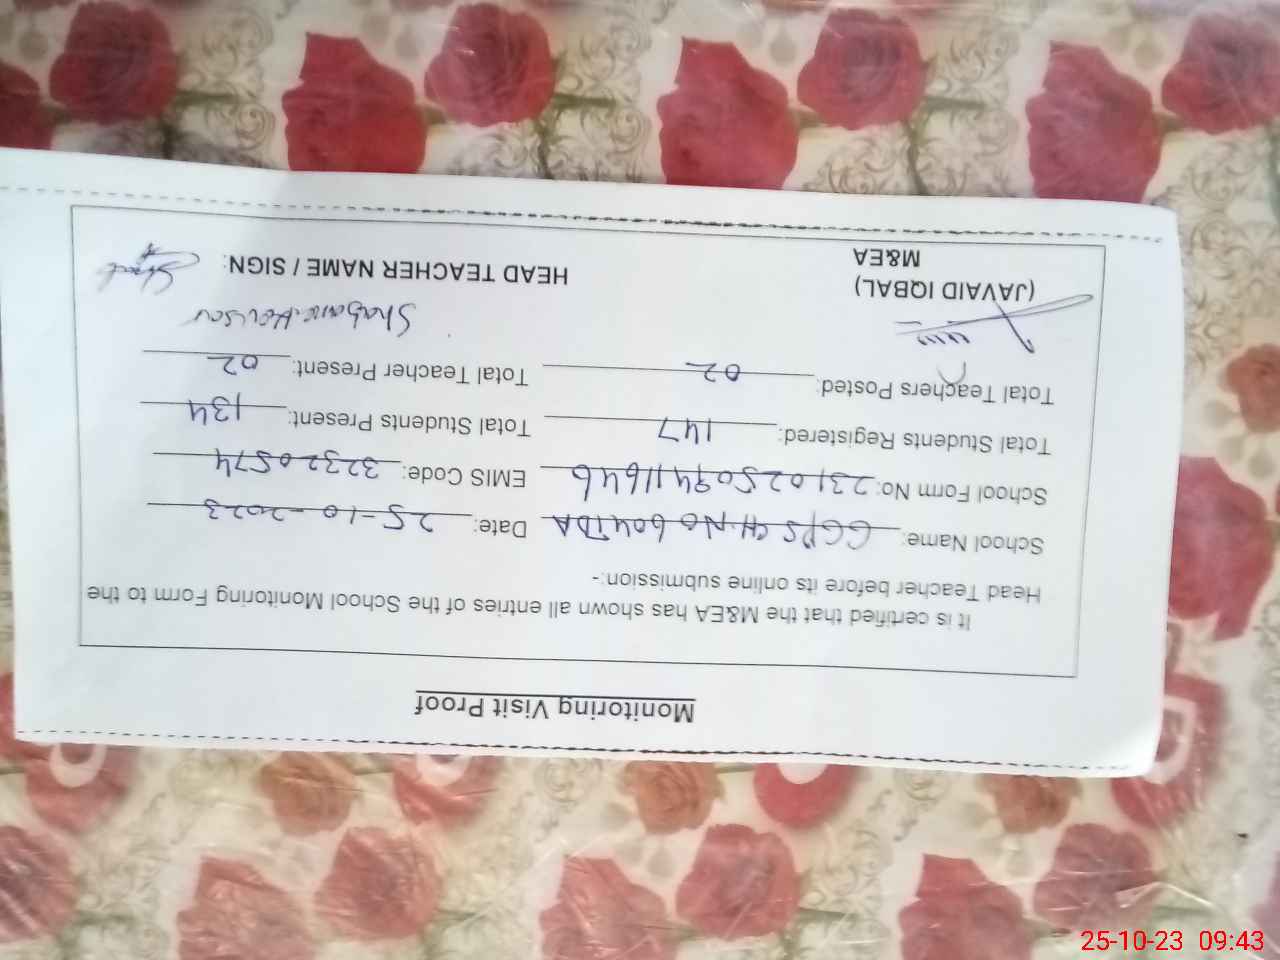 Monitoring Visit Proof
It is certified that the M&EA has shown all entries of the School Monitoring Form to the
Head Teacher before its online submission:-
School Name: GGPS CH.NO 604TDA Date: 25-10-2023
School Form No: 23102509411646 EMIS Code: 32320574
Total Students Registered: 147 Total Students Present: 134
Total Teachers Posted: 02 Total Teacher Present: 02
Shabana
(JAVAID IQBAL) HEAD TEACHER NAME / SIGN:
M&EA
25-10-23 09:43